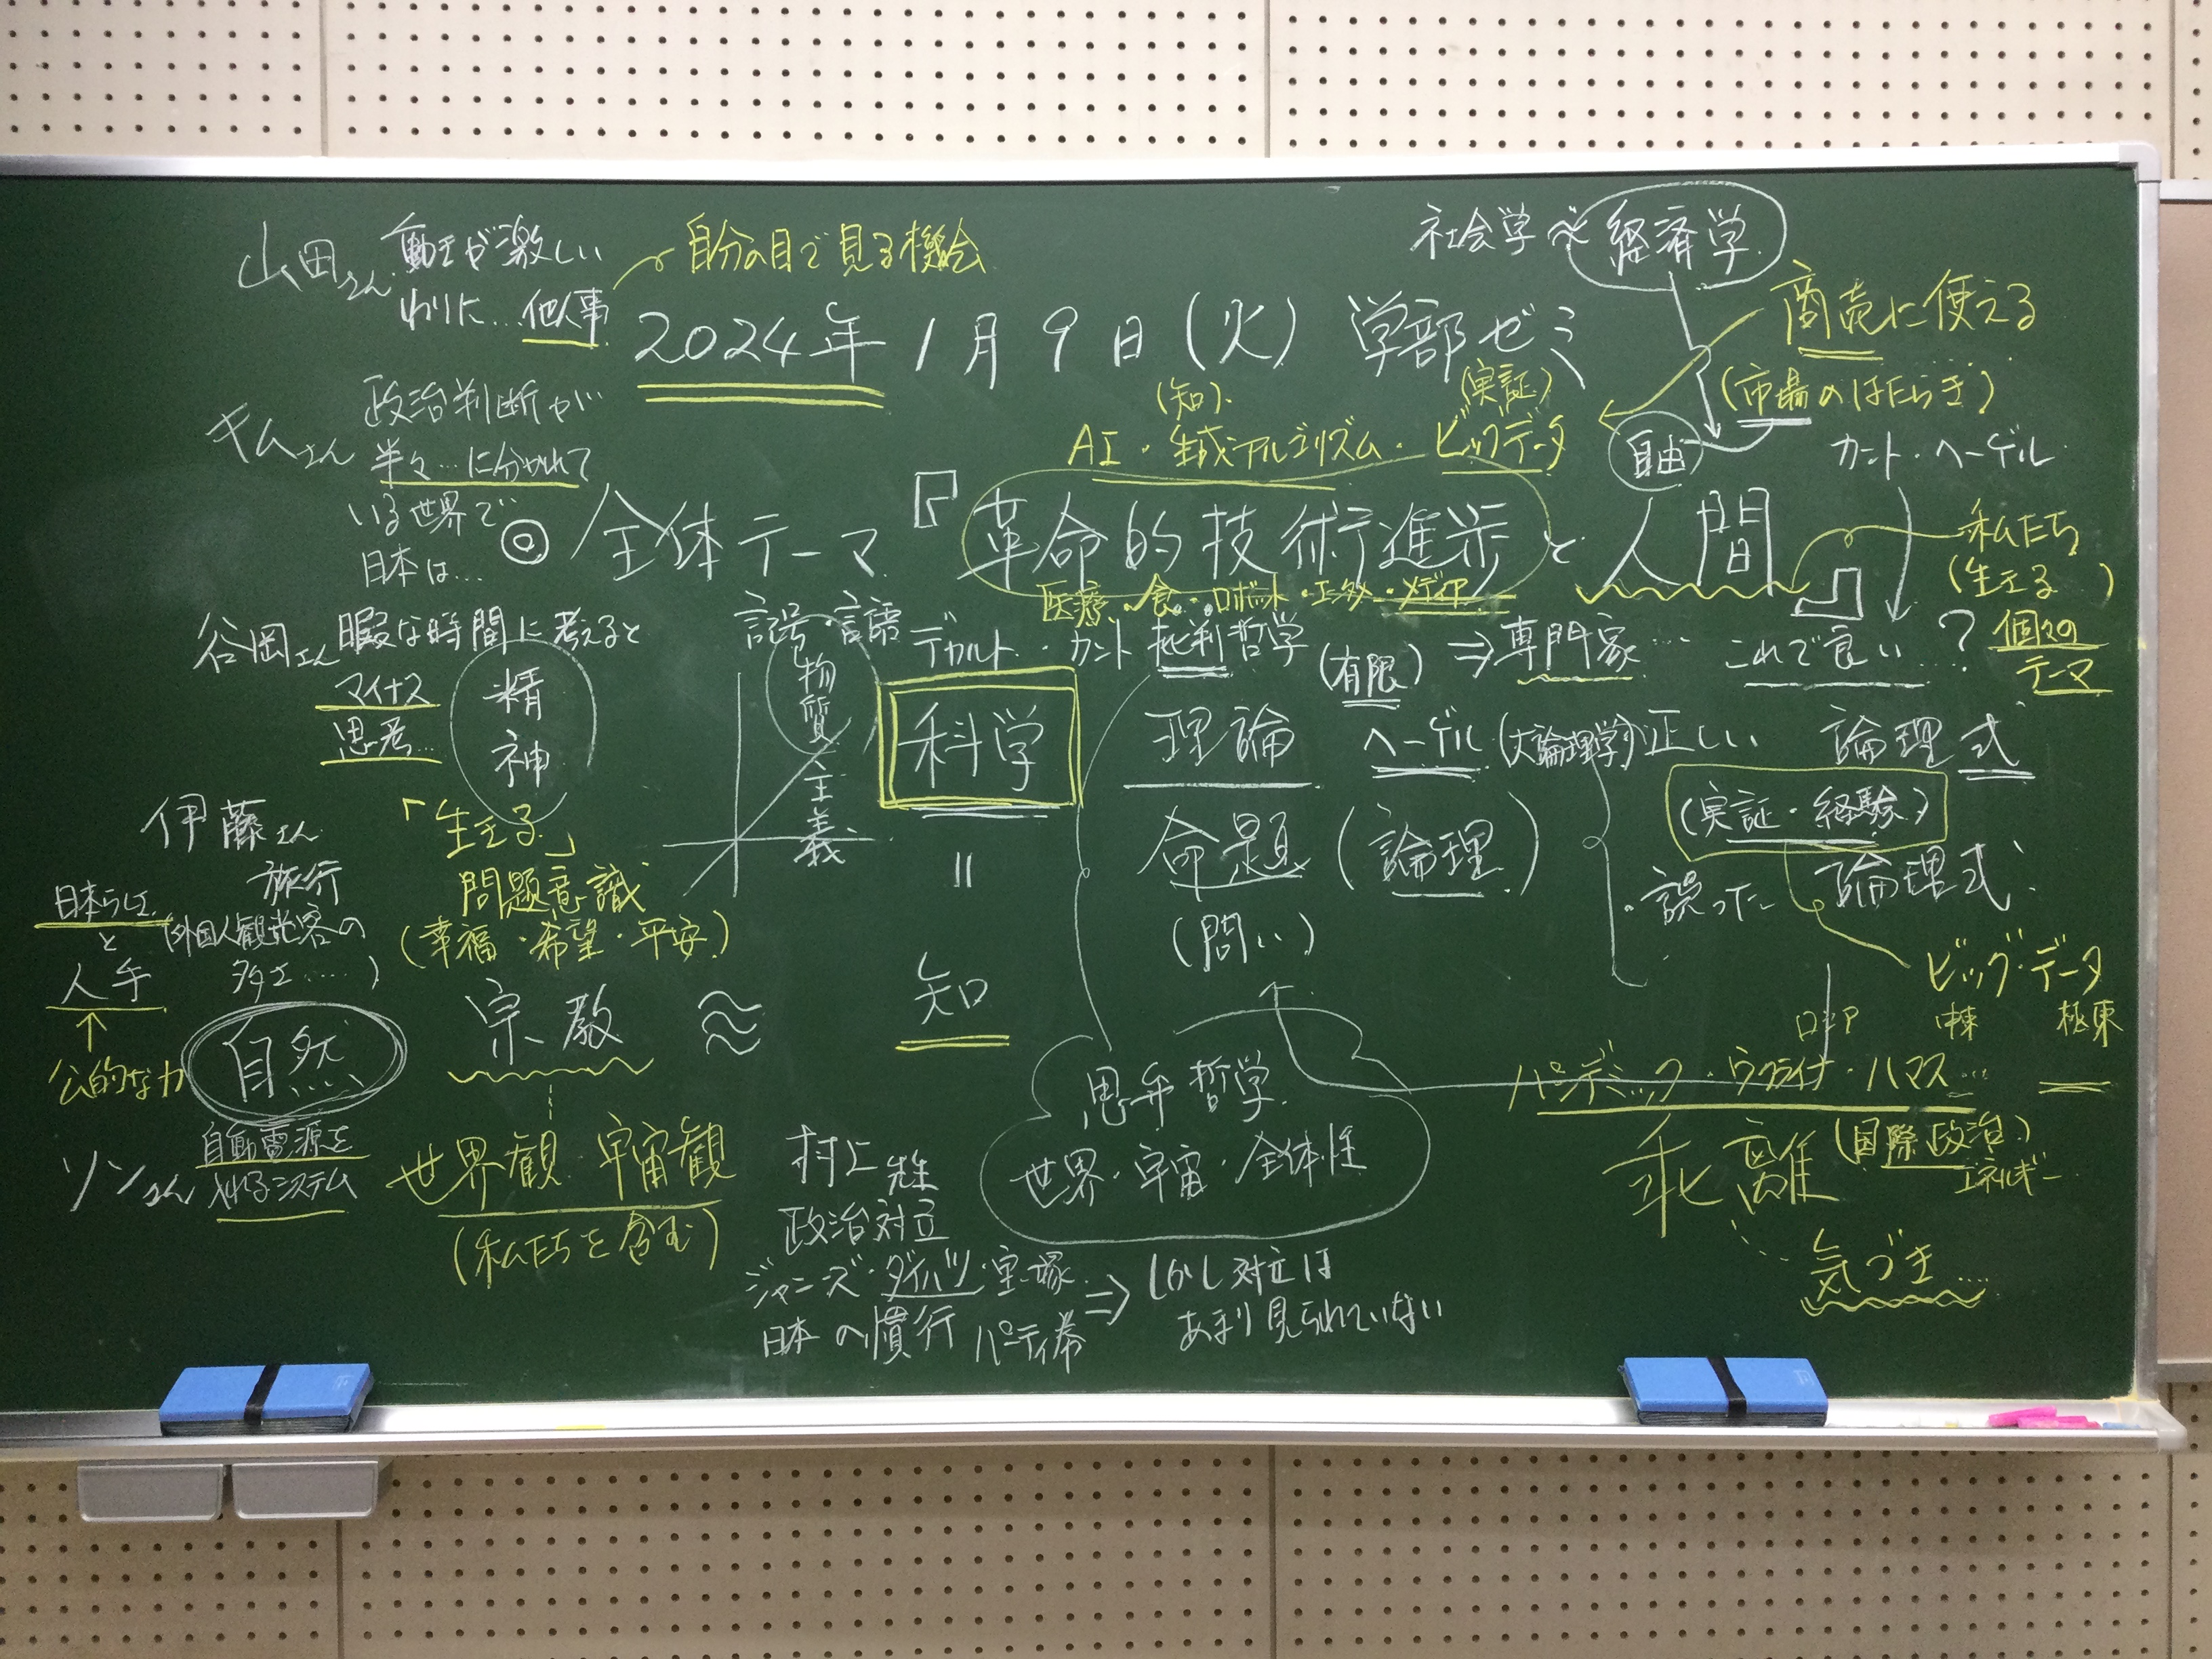 山田さん 動きが激しい
わりに…他人事
自分の目で見る機会
社会学 ≈ 経済学
商売に使える
(市場のはたらき)
2024年1月9日(火) 学部ゼミ
キムさん 政治判断が
半々…に分かれて
いる世界で
日本は…
(知) (実証)
AI・生成アルゴリズム・ビックデータ
自由
カント・ヘーゲル
◎全体テーマ『革命的技術進歩と人間』
医療・食・ロボット・エンタメ・メディア
私たち
(生きる )
個々の
テーマ
谷岡さん 暇な時間に考えると
マイナス
思考…
精神
記号・言語
物質主義
デカルト・カント 批判哲学
(有限) ⇒ 専門家……これで良い…?
科学
理論 ヘーゲル (大論理学) 正しい 論理式
(実証・経験)
命題 (論理) ・誤った 論理式
(問い)
ビッグ・データ
伊藤さん
旅行
(外国人観光客の
多さ……)
日本らしさ
と
人手
↑
公的な力
「生きる」
問題意識
(幸福・希望・平安)
宗教 ≈ 知
=
自然
世界観・宇宙観
(私たちを含む)
ソンさん 自動電源を
システム
思弁哲学
世界・宇宙・全体性
ロシア 中東 極東
パンデミック・ウクライナ・ハマス…
乖離 (国際政治)
エネルギー
気づき……
村上先生
政治対立
ジャニーズ・ダイハツ・宝塚
日本の慣行 パーティ券
⇒ しかし対立は
あまり見られていない